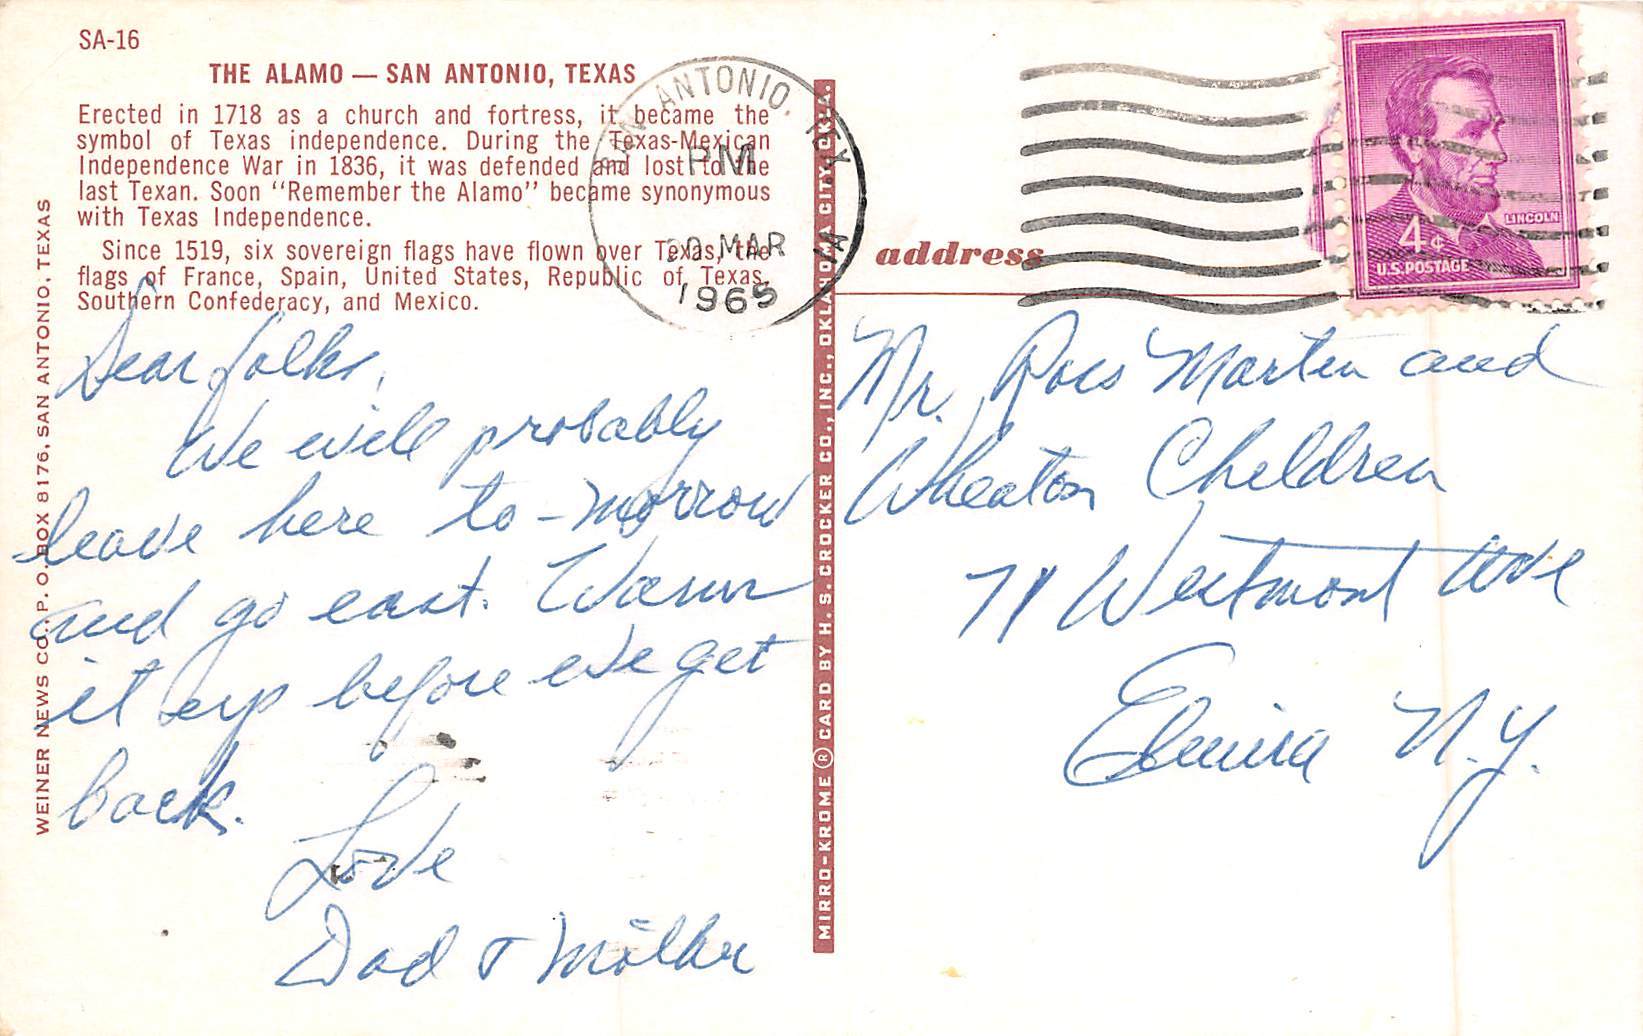 SA-16
THE ALAMO — SAN ANTONIO, TEXAS
Erected in 1718 as a church and fortress, it became the
symbol of Texas independence. During the Texas-Mexican
Independence War in 1836, it was defended and lost to the
last Texan. Soon "Remember the Alamo" became synonymous
with Texas Independence.
Since 1519, six sovereign flags have flown over Texas, the
flags of France, Spain, United States, Republic of Texas,
Southern Confederacy, and Mexico.
WEINER NEWS CO., P. O. BOX 8176, SAN ANTONIO, TEXAS
Dear folks,
We will probably
leave here to-morrow
and go east. Warm
it up before we get
back.
Love
Dad & Mother
MIRRO-KROME ® CARD BY H. S. CROCKER CO., INC., OKLAHOMA CITY, OKLA.
SAN ANTONIO, TEX
PM
MAR
1965
LINCOLN
4¢
U.S. POSTAGE
address
Mr. Ross Martin and
Wheaton Children
71 Westmont Ave
Elmira N.Y.